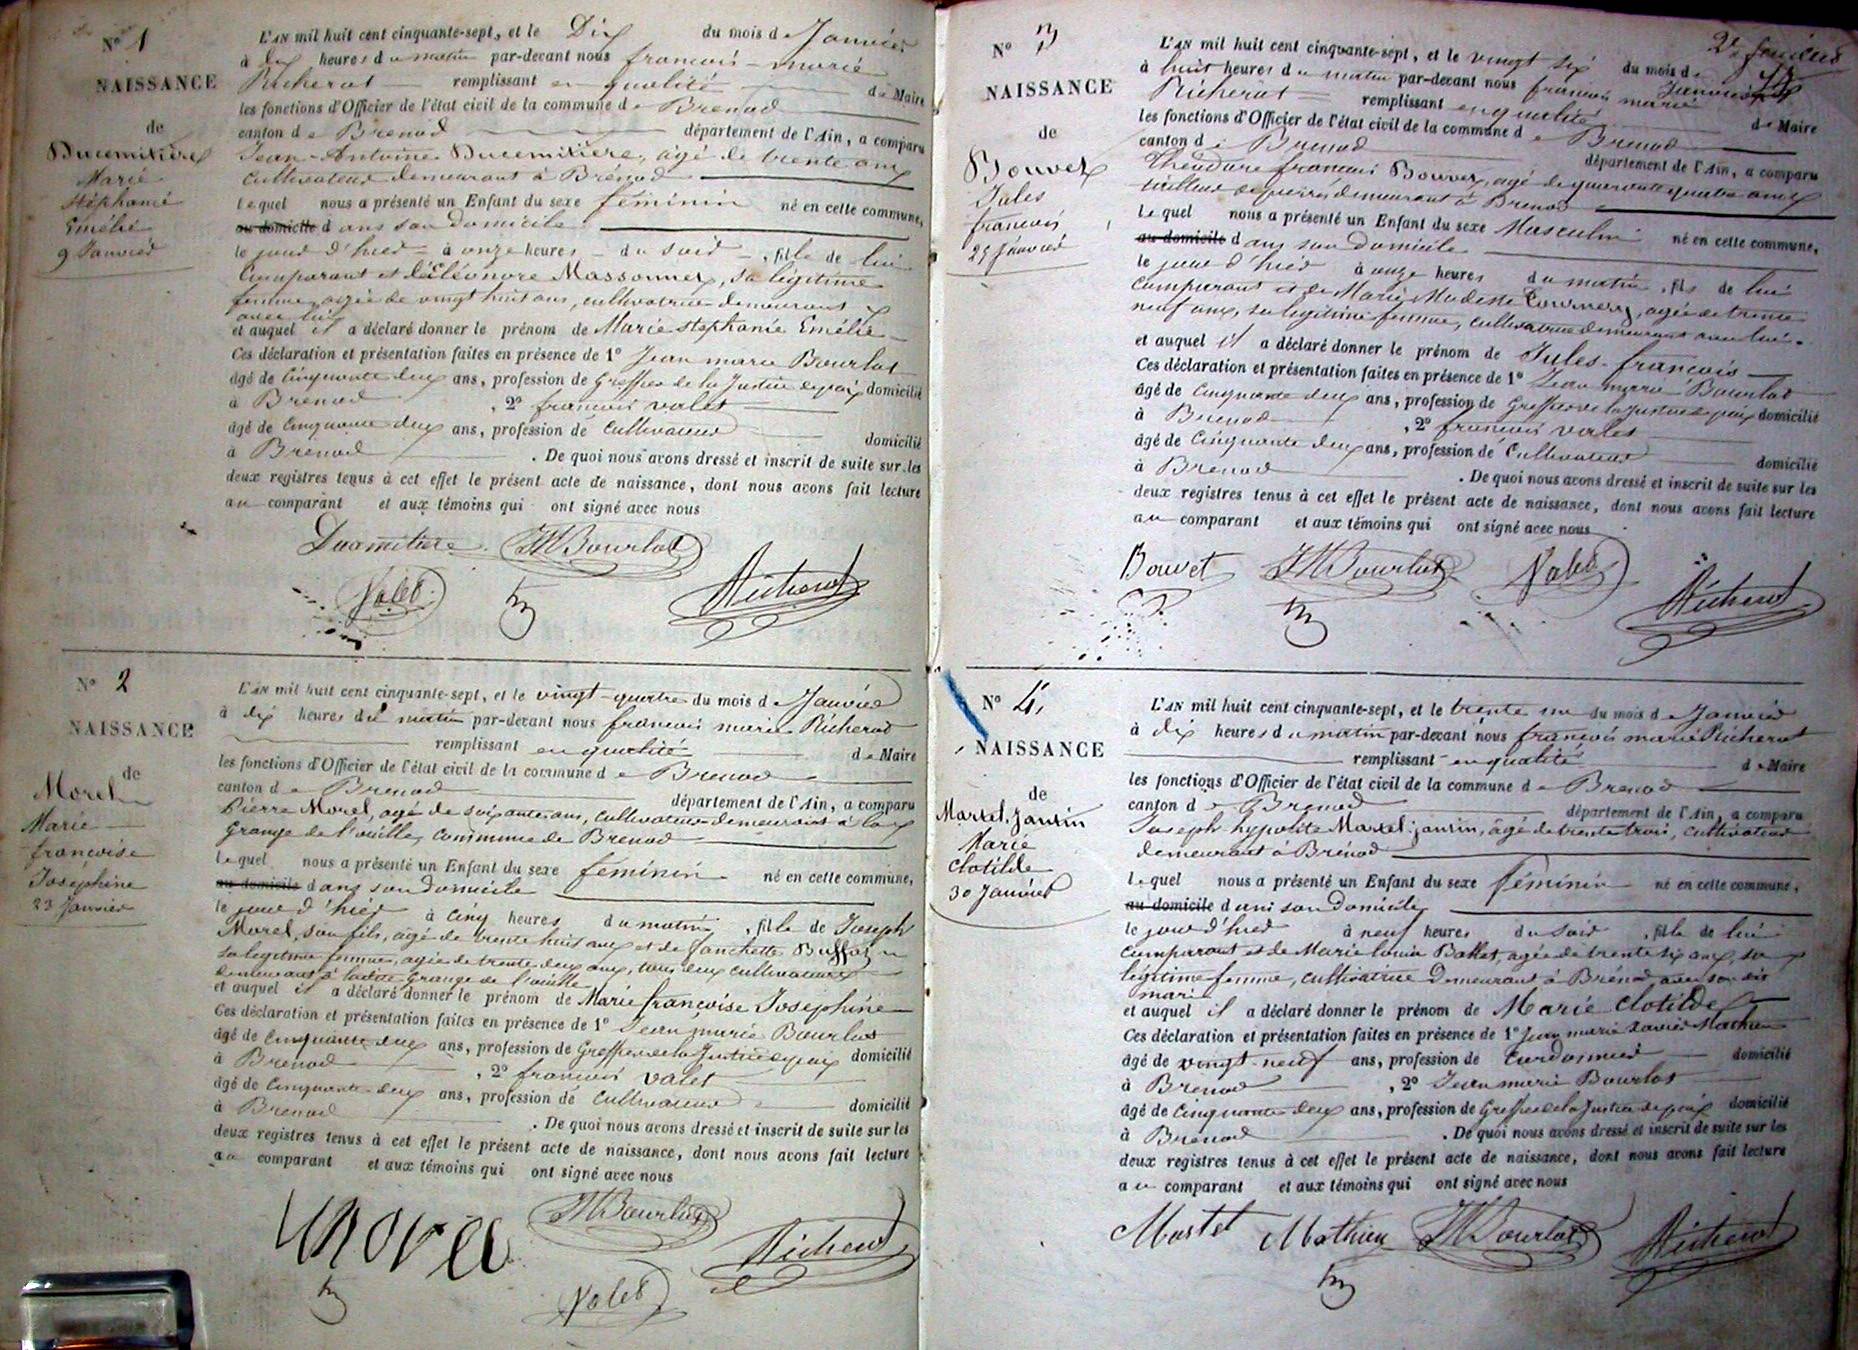 N° 1
NAISSANCE
de
Ducimitière
Marie
Stéphanie
Emélie
9 Janvier
L'AN mil huit cent cinquante-sept, et le Dix du mois de Janvier
à dix heures du matin par-devant nous françois-marie
Richerot remplissant en qualité de Maire
les fonctions d'Officier de l'état civil de la commune de Brenod
canton de Brenod département de l'Ain, a comparu
Jean-Antoine Ducimitière, âgé de trente ans
cultivateur demeurant à Brénod
lequel nous a présenté un Enfant du sexe féminin né en cette commune,
au domicile dans son domicile
le jour d'hier à onze heures du soir, fille de lui
Comparant et de Eléonore Massonnet, sa légitime
femme, agée de vingt huit ans, cultivatrice demeurant
avec lui
et auquel il a déclaré donner le prénom de Marie Stephanie Emélie
Ces déclaration et présentation faites en présence de 1° Jean marie Bourlot
âgé de Cinquante deux ans, profession de Greffier de la Justice de paix domicilié
à Brenod, 2° françois valet
âgé de Cinquante deux ans, profession de Cultivateur domicilié
à Brenod. De quoi nous avons dressé et inscrit de suite sur les
deux registres tenus à cet effet le présent acte de naissance, dont nous avons fait lecture
au comparant et aux témoins qui ont signé avec nous
Ducimitière JMBourlot
Valet Richerot
N° 2
NAISSANCE
de
Morel
Marie
françoise
Joséphine
23 Janvier
L'AN mil huit cent cinquante-sept, et le vingt-quatre du mois de Janvier
à dix heures du matin par-devant nous françois marie Richerot
remplissant en qualité de Maire
les fonctions d'Officier de l'état civil de la commune de Brenod
canton de Brenod département de l'Ain, a comparu
Pierre Morel, agé de soixante ans, cultivateur demeurant à la
Grange de l'ouille, commune de Brenod
lequel nous a présenté un Enfant du sexe féminin né en cette commune,
au domicile dans son domicile
le jour d'hier à cinq heures du matin, fille de Joseph
Morel, son fils, agé de trente huit ans et de fanchette Buffoz
sa légitime femme, agée de trente deux ans, tous deux cultivateurs
demeurant à ladite Grange de l'ouille
et auquel il a déclaré donner le prénom de Marie françoise Joséphine
Ces déclaration et présentation faites en présence de 1° Jean marie Bourlot
âgé de Cinquante deux ans, profession de Greffier de la Justice de paix domicilié
à Brenod, 2° françois valet
âgé de Cinquante deux ans, profession de Cultivateur domicilié
à Brenod. De quoi nous avons dressé et inscrit de suite sur les
deux registres tenus à cet effet le présent acte de naissance, dont nous avons fait lecture
au comparant et aux témoins qui ont signé avec nous
Morel JMBourlot
Richerot
Valet
2e feuillet
N° 3
NAISSANCE
de
Bouvet
Jules
françois
25 Janvier
L'AN mil huit cent cinquante-sept, et le vingt six du mois de Janvier
à huit heures du matin par-devant nous françois marie
Richerot remplissant en qualité de Maire
les fonctions d'Officier de l'état civil de la commune de Brenod
canton de Brenod département de l'Ain, a comparu
Théodore françois Bouvet, agé de quarante quatre ans
tailleur de pierres demeurant à Brenod
lequel nous a présenté un Enfant du sexe Masculin né en cette commune,
au domicile dans son Domicile
le jour d'hier à onze heures du matin, fils de lui
Comparant et de Marie Modeste Tournery, agée de trente
neuf ans, sa légitime femme, cultivatrice demeurant avec lui
et auquel il a déclaré donner le prénom de Jules-françois
Ces déclaration et présentation faites en présence de 1° Jean marie Bourlot
âgé de Cinquante deux ans, profession de Greffier de la Justice de paix domicilié
à Brenod, 2° françois valet
âgé de Cinquante deux ans, profession de Cultivateur domicilié
à Brenod. De quoi nous avons dressé et inscrit de suite sur les
deux registres tenus à cet effet le présent acte de naissance, dont nous avons fait lecture
au comparant et aux témoins qui ont signé avec nous
Bouvet JMBourlot Valet
Richerot
N° 4,
NAISSANCE
de
Martel, Jantin
Marie
Clotilde
30 Janvier
L'AN mil huit cent cinquante-sept, et le trente un du mois de Janvier
à dix heures du matin par-devant nous françois marie Richerot
remplissant en qualité de Maire
les fonctions d'Officier de l'état civil de la commune de Brenod
canton de Brenod département de l'Ain, a comparu
Joseph hypolite Martel jantin, âgé de trente trois, cultivateur
demeurant à Brénod
lequel nous a présenté un Enfant du sexe féminin né en cette commune,
au domicile dans son domicile
le jour d'hier à neuf heures du soir, fille de lui
Comparant et de Marie louise Ballet, agée de trente six ans, sa
légitime femme, cultivatrice Demeurant à Brénod avec son dit
mari
et auquel il a déclaré donner le prénom de Marie Clotilde
Ces déclaration et présentation faites en présence de 1° Jean marie xavier Mathieu
âgé de vingt-neuf ans, profession de Cordonnier domicilié
à Brenod, 2° Jean marie Bourlot
âgé de Cinquante deux ans, profession de Greffier de la Justice de paix domicilié
à Brenod. De quoi nous avons dressé et inscrit de suite sur les
deux registres tenus à cet effet le présent acte de naissance, dont nous avons fait lecture
au comparant et aux témoins qui ont signé avec nous
Martel Mathieu JMBourlot Richerot